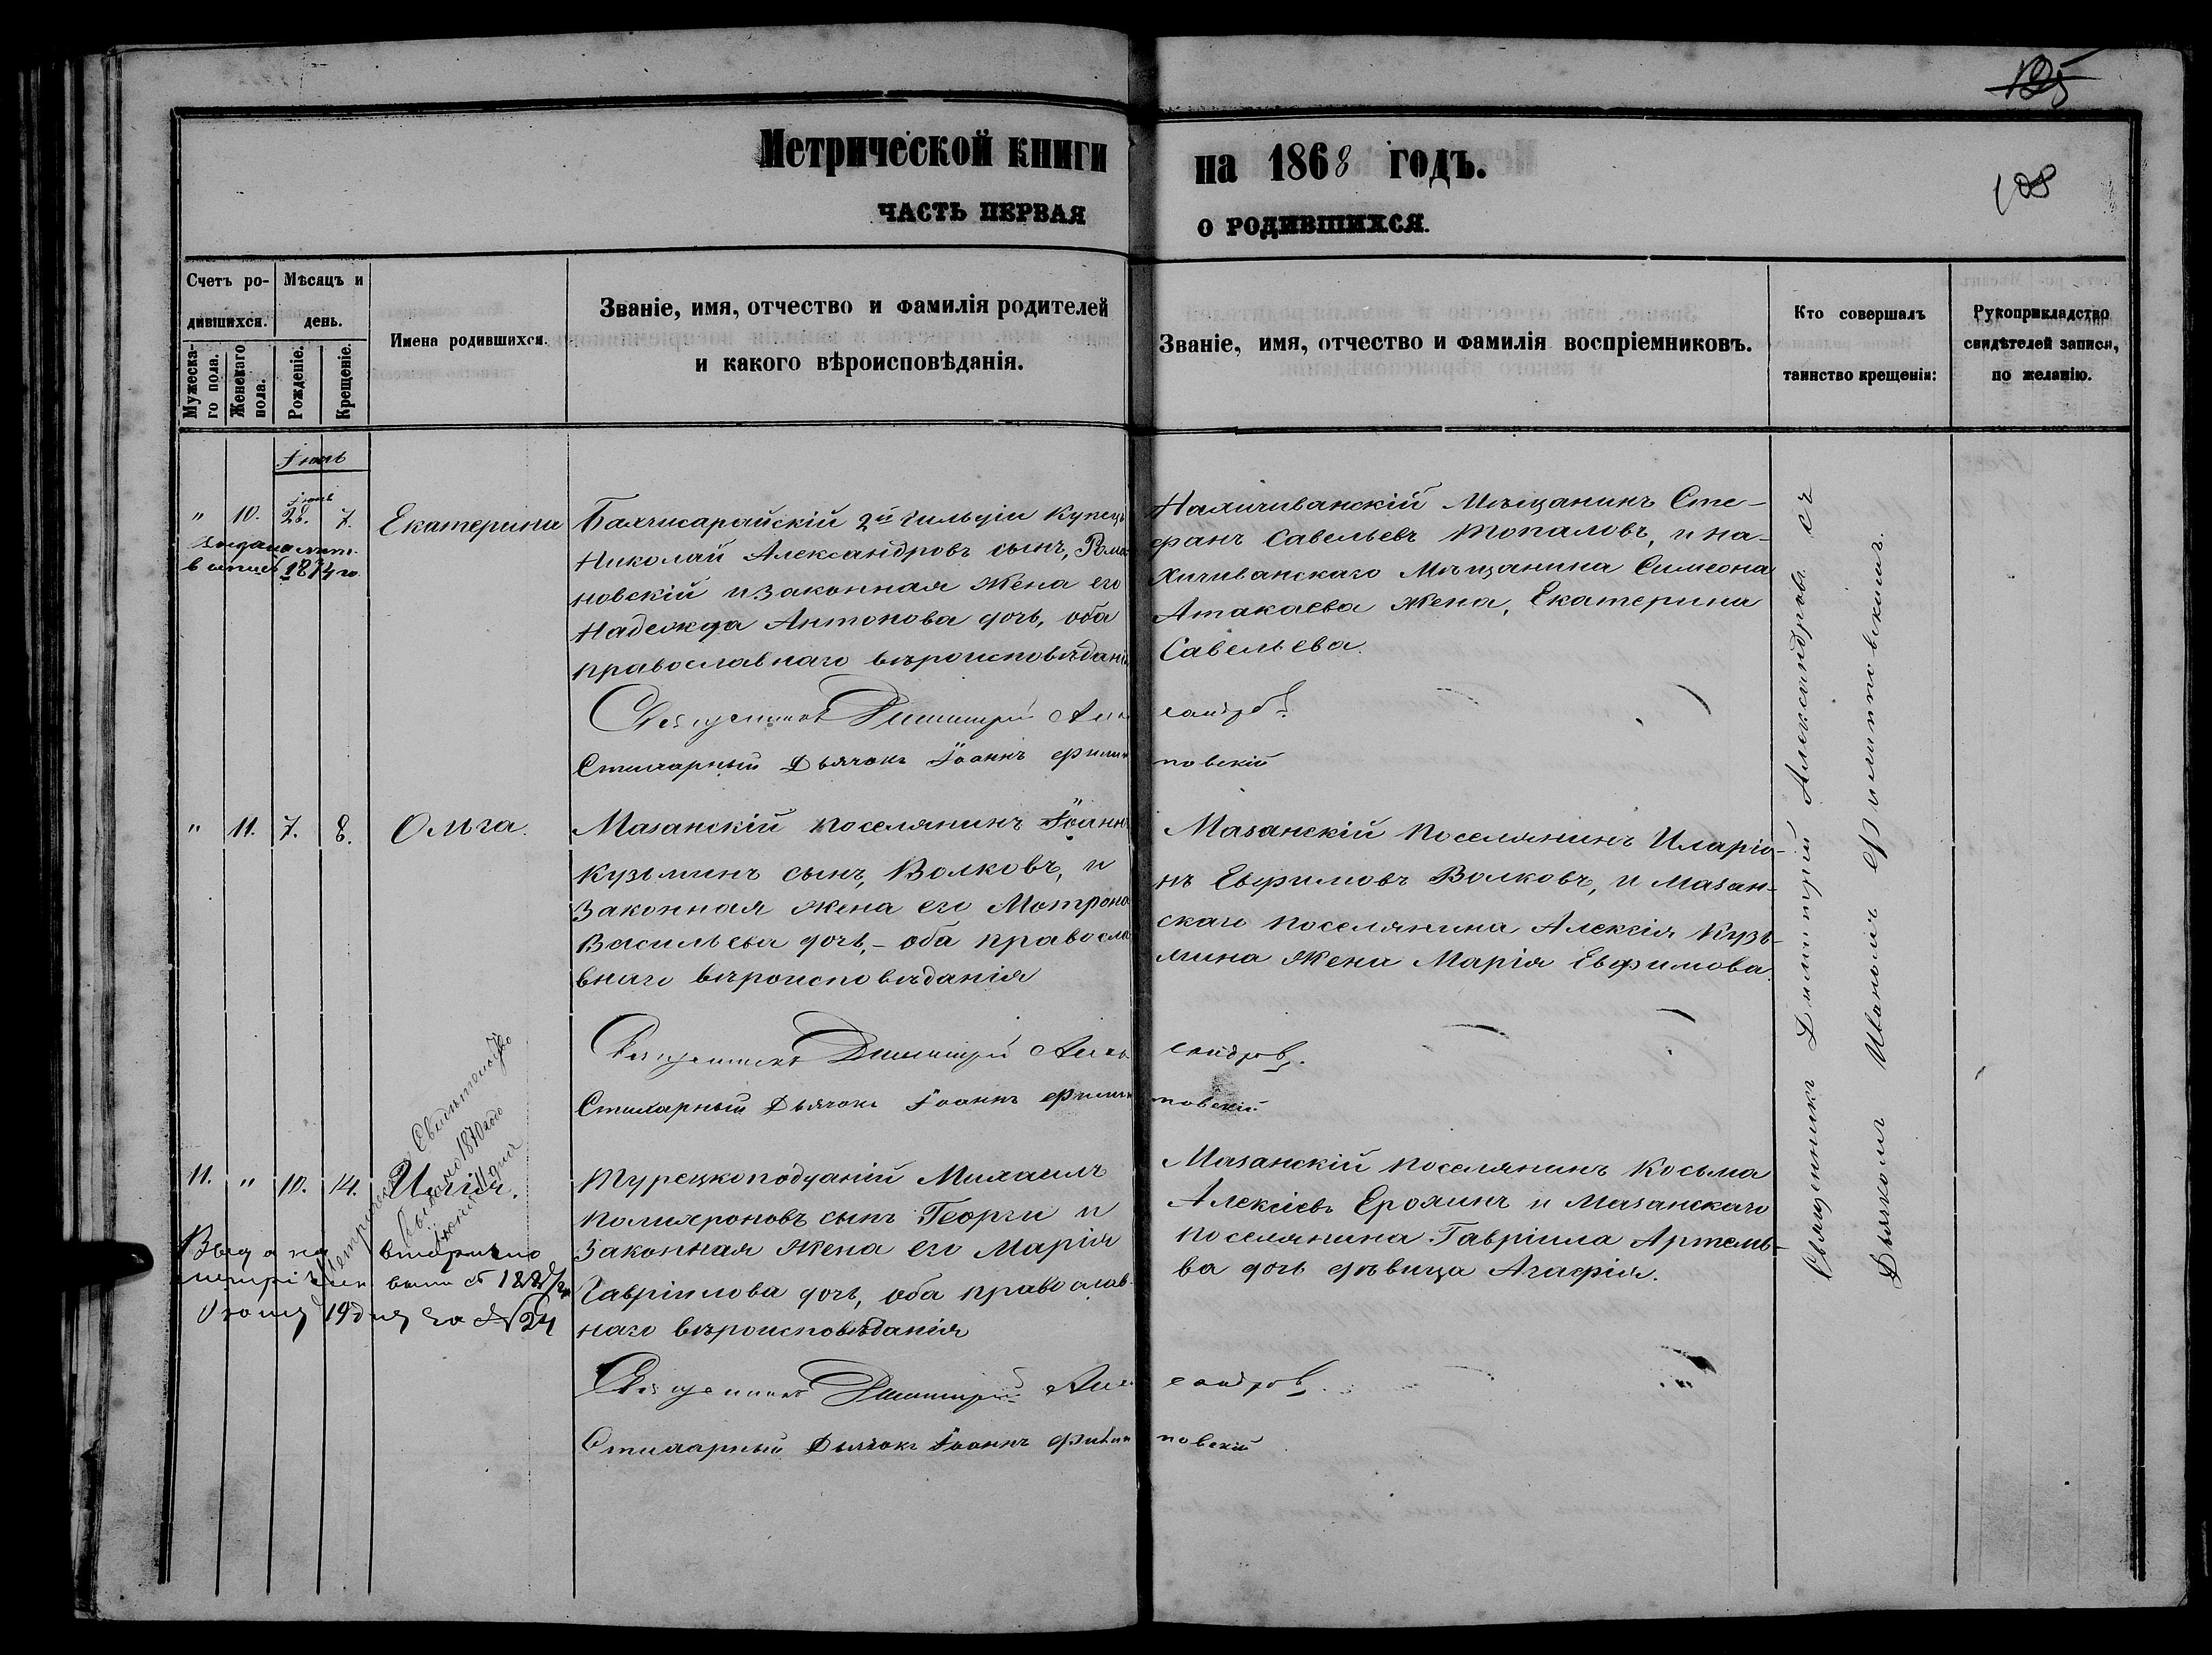 125
108
Метрической книги на 1868 годъ.
часть первая о родившихся.
Счетъ родившихся.
Мужескаго пола.
Женскаго пола.
Мѣсяцъ и день.
Рожденіе.
Крещеніе.
Имена родившихся.
Званіе, имя, отчество и фамилія родителей
и какого вѣроисповѣданія.
Званіе, имя, отчество и фамилія воспріемниковъ.
Кто совершалъ
таинство крещенія:
Рукоприкладство
свидѣтелей записи,
по желанію.
Іюль
" 10. Іюня 28. 7. Екатерина
1874 го
Бахчисарайскій 2й гильдіи Купецъ
Николай Александровъ сынъ, Рома-
новскій и законная жена его
Надежда Антонова дочь, оба
православнаго вѣроисповѣданія
Нахичиванскій Мѣщанинъ Сте-
фанъ Савельевъ Топаловъ, и На-
хичиванскаго Мѣщанина Симеона
Атакаева жена, Екатерина
Савельева.
Священникъ Димитрій Александровъ
Стихарный Дьячокъ Іоаннъ Филипповскій
" 11. 7. 8. Ольга.
Мазанскій поселянинъ Іоаннъ
Кузьминъ сынъ, Волковъ, и
законная жена его Мотрона
Васильева дочь, - оба правосла
внаго вѣроисповѣданія
Мазанскій поселянинъ Иларіо-
нъ Евфимовъ Волковъ, и Мазан-
скаго поселянина Алексія Кузь-
мина жена Марія Евфимова.
Священникъ Димитрій Александровъ.
Стихарный Дьячокъ Іоаннъ Филипповскій
11. " 10. 14. Илія.
Свидѣтельство
выдано 1870 года
Выдана вторично
19 дня за № 24
Турецкоподданій Михаилъ
Полихроновъ сынъ Георги и
законная жена его Марія
Гавріилова дочь, оба православ-
наго вѣроисповѣданія
Мазанскій поселянинъ Косьма
Алексіевъ Ерохинъ и Мазанскаго
поселянина Гавріила Артемь-
ва дочь дѣвица Агафія.
Священникъ Димитрій Александровъ.
Стихарный Дьячокъ Іоаннъ Филипповскій
Священникъ Димитрій Александровъ съ
Дьячкомъ Иваномъ Филипповскимъ.